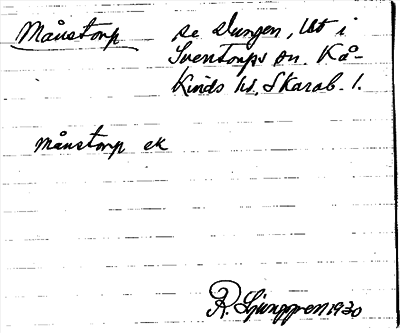 Månstorp se Dungen, Ut i
Sventorps sn. Kå-
Kinds hd. Skarab. l.
månstorp ek
R. Ljunggren 1930